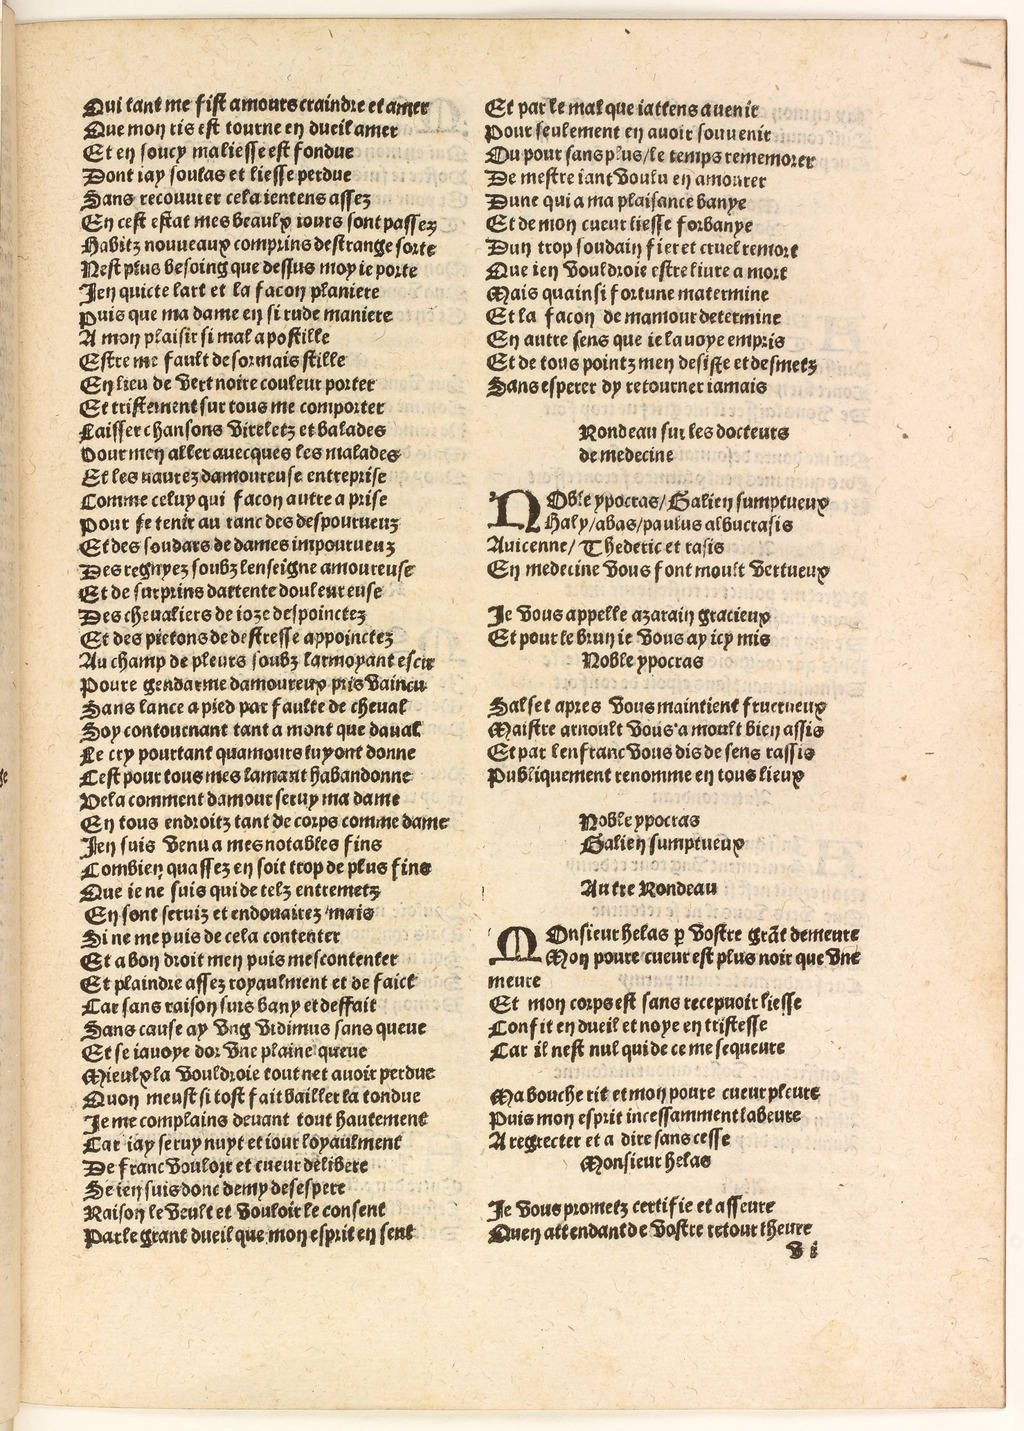 Qui tant me fist amours craindre et amer
Que mon ris est tourne en dueil amer
Et en soucy ma liesse est fondue
Dont iay soulas et liesse perdue
Sans recouurer cela ientens assez
En cest estat mes beaulx iours sont passez
Habitz nouueaux comprins destrange sorte
Nest plus besoing que dessus moy ie porte
Jen quicte lart et la facon planiere
Puis que ma dame en si rude maniere
A mon plaisir si mal apostille
Estre me fault desormais stille
En lieu de vert noire couleur porter
Et tristement sur tous me comporter
Laisser chansons vireletz et balades
Pour men aller auecques les malades
Et les naurez damoureuse entreprise
Comme celuy qui facon autre a prise
Pour se tenir au ranc des despourueuz
Et des soudars de dames impourueuz
Des regnyez soubz lenseigne amoureuse
Et de surprins dattente douleureuse
Des cheualiers de ioze despoinctez
Et des pietons de destresse appoinctez
Au champ de pleurs soubz larmoyant escu
Poure gendarme damoureux pris vaincu
Sans lance a pied par faulte de cheual
Soy contournant tant a mont que daual
Le cry pourtant quamours luy ont donne
Cest pour tous mes lamant habandonne
Vela comment damour seruy ma dame
En tous endroitz tant de corps comme dame
Jen suis venu a mes notables fins
Combien quassez en soit trop de plus fins
Que ie ne suis qui de telz entremetz
En sont seruiz et endouairez mais
Si ne me puis de cela contenter
Et a bon droit men puis mescontenter
Et plaindre assez royaulment et de faict
Car sans raison suis bany et deffait
Sans cause ay vng vidimus sans queue
Et se iauoye dor vne plaine queue
Mieulx la vouldroie tout net auoir perdue
Quon meust si tost fait bailler la tondue
Je me complains deuant tout haultement
Car iay seruy nuyt et iour loyaulment
De franc vouloir et cueur delibere
Se ien suis donc demy desespere
Raison le veult et vouloir le consent
Par le grant dueil que mon esprit en sent
Et par le mal que iattens auenir
Pour seulement en auoir souuenir
Ou pour sans plus/le temps rememorer
De mestre iant voulu en amourer
Dune qui a ma plaisance banye
Et de mon cueur liesse forbanye
Dun trop soudain fier et cruel remort
Que ien vouldroie estre liure a mort
Mais quainsi fortune matermine
Et la facon de mamour determine
En autre sens que ie lauoye empris
Et de tous pointz men desiste et desmetz
Sans esperer dy retourner iamais
Rondeau sur les docteurs
de medecine
NOble ypocras/Galien sumptueux
Haly/abas/paulus albucrasis
Auicenne/Thederic et rasis
En medecine vous font moult vertueux
Je vous appelle azarain gracieux
Et pour le brun ie vous ay icy mis
Noble ypocras
Salset apres vous maintient fructueux
Maistre arnoult vous a moult bien assis
Et par lenfranc vous dis de sens rassis
Publiquement renomme en tous lieux
Noble ypocras
Galien sumptueux
Autre Rondeau
MOnsieur helas ꝑ vostre grãt demeure
Mon poure cueur est plus noir que vne
meure
Et mon corps est sans recepuoir liesse
Confit en dueil et noye en tristesse
Car il nest nul qui de ce me sequeure
Ma bouche rit et mon poure cueur pleure
Puis mon esprit incessamment labeure
A regrecter et a dire sans cesse
Monsieur helas
Je vous prometz certifie et asseure
Quen attendant de vostre retour lheure
v i